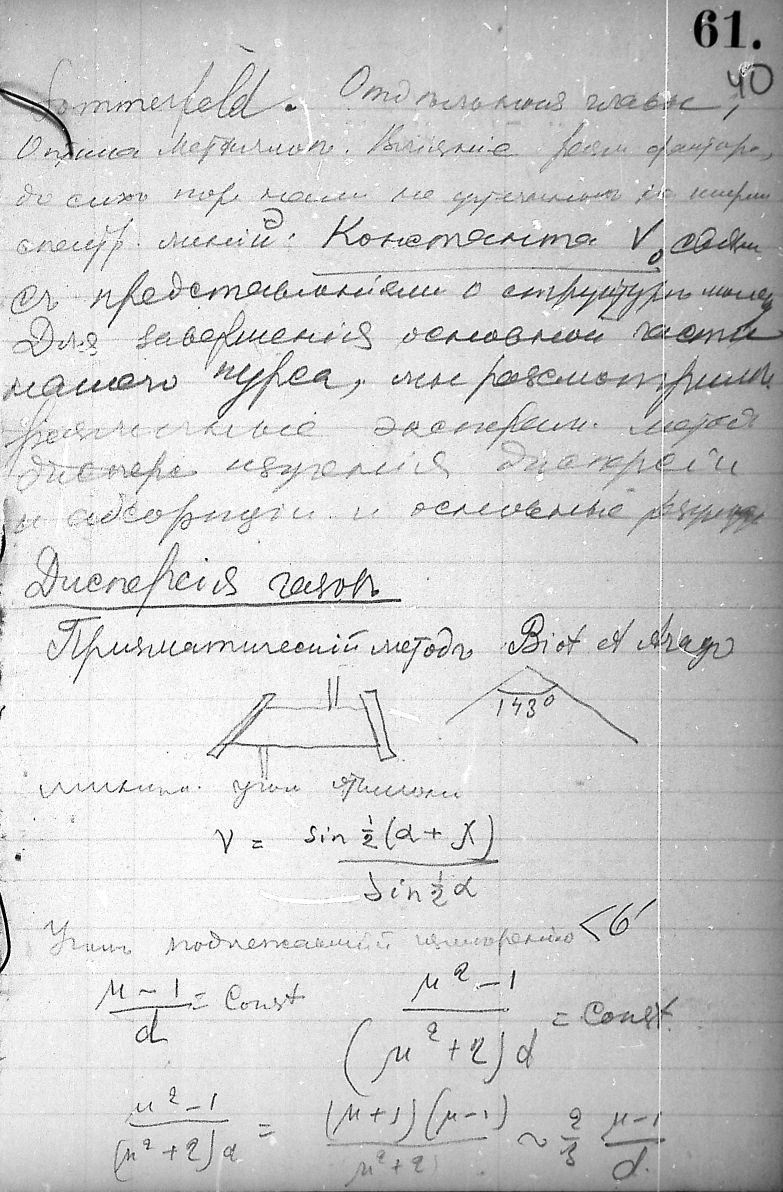 61.
40
Sommerfeld. Отдѣльныя главы,
Оптика металловъ. Вліяніе
до сихъ пор нами не на ширин
спектр. линій. Константа ν₀ связан
съ представленіями о структурѣ молек
Для завершенія основной части
нашего курса, мы разсмотримъ
различные эксперим. метод
дисперс изученія дисперсіи
и абсорпціи и основные результ
Дисперсія газовъ
Призматическій методъ Biot et Arago
143°
миним. угол
ν = sin ½(α + χ) / sin ½ α
Уголъ подлежавшій измѣренію <6'
μ – 1 / d = Const (μ² – 1) / (μ² + 2) d = Const.
μ² – 1 / (μ² + 2) d = (μ + 1) (μ – 1) / μ² + 2 ~ 2/3 μ – 1 / d.